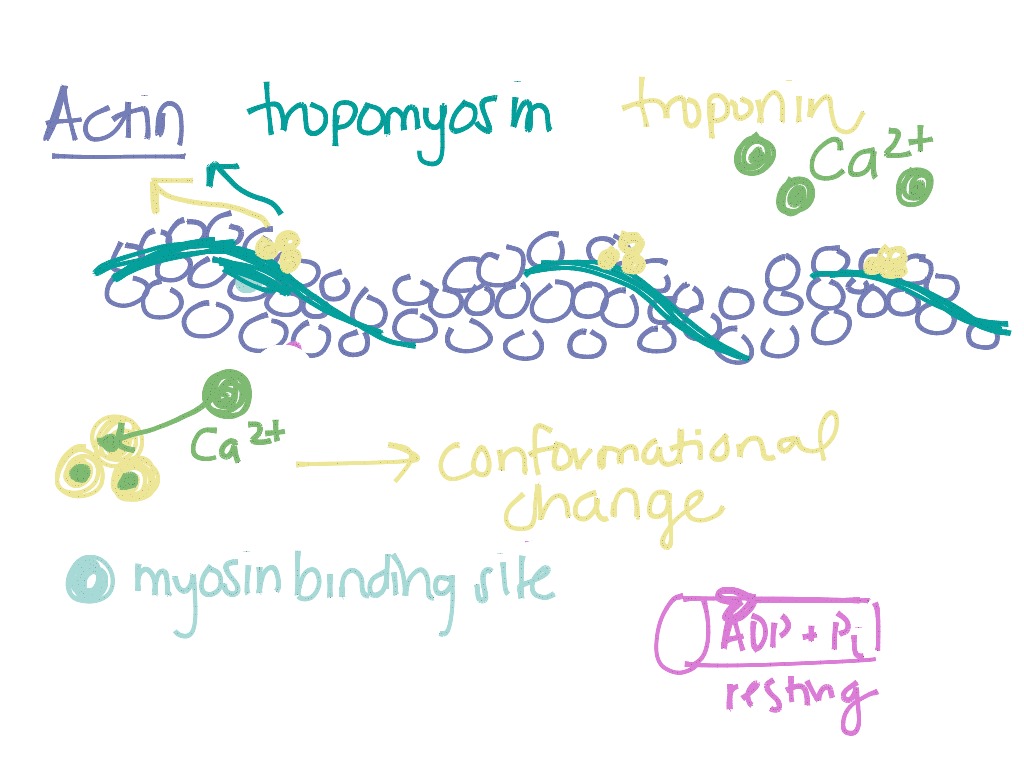 Actin tropomyosin troponin
Ca²⁺
Ca²⁺
conformational
change
myosin binding site
ADP + Pi
resting